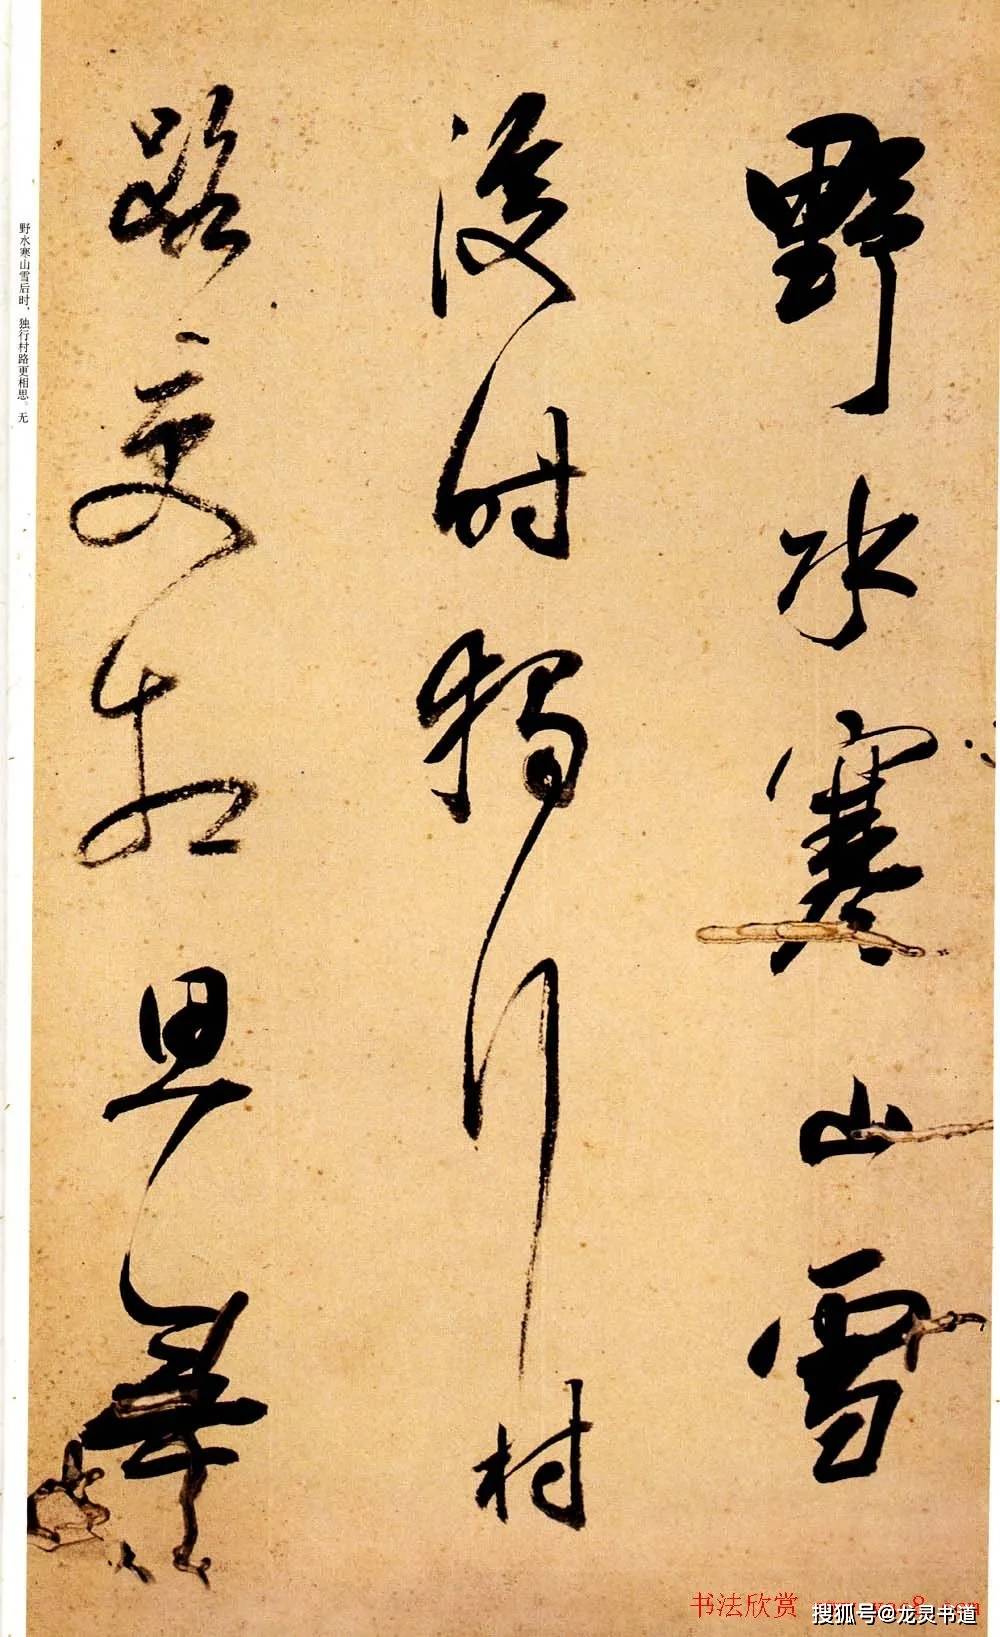 野水寒山雪
後時獨行村
路更相思無
野水寒山雪后时，独行村路更相思。无
书法欣赏
搜狐号@龙灵书道